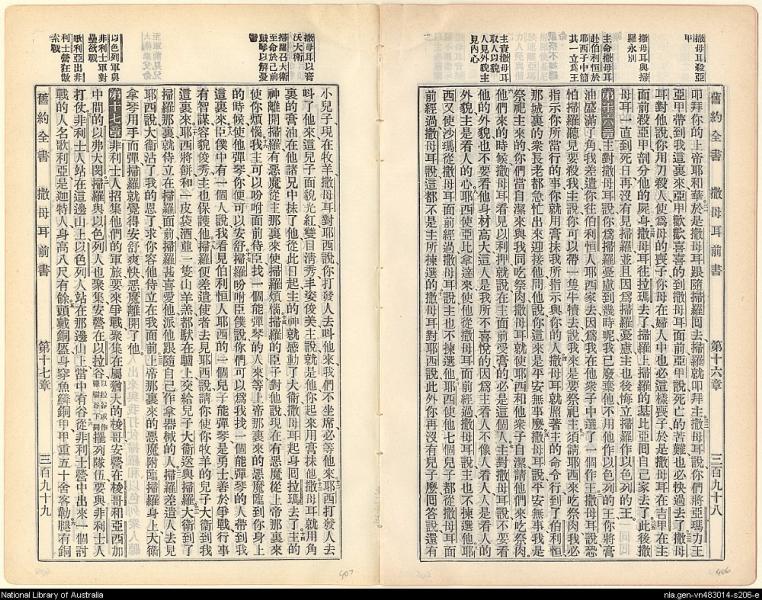 撒母耳殺亞甲
撒母耳與掃羅永別
主命撒母耳赴伯利恒於耶西子中簡其一立爲王
主責撒母耳取人以貌
人見外貌主見內心
叩拜你的上帝耶和華於是撒母耳跟隨掃羅回去掃羅就叩拜主撒母耳說你們將亞瑪力王
亞甲帶到我這裏來亞甲歡歡喜喜的到撒母耳面前亞甲說死亡的苦難也必快過去了撒母
耳對他說你用刀殺人使爲母的喪子你母在婦人中也必這樣喪子於是撒母耳在吉甲在主
面前殺亞甲剖分他的屍身撒母耳往拉瑪去了掃羅上掃羅的基比亞回自己家去了此後撒
母耳一直到死日再沒有見掃羅並且因爲掃羅憂慮主也後悔立掃羅作以色列的王
第十六章 主對撒母耳說你爲掃羅憂慮到幾時呢我已廢棄他不用他作以色列的王你將膏
油盛滿了角我差遣你往伯利恒人耶西家去因爲我在他衆子中選了一個作王撒母耳說恐
怕掃羅聽見要殺我主說你可以帶一隻牛犢去說我來是要祭祀主須請耶西來吃祭肉我必
指示你所當行的事你就用膏抹我所指示與你的人撒母耳就照著主的命令行到了伯利恒
那城裏的衆長老都急忙出來迎接他問他說你這來是平安無事麼撒母耳說平安無事我是
祭祀主來的你們當自潔來與我同吃祭肉撒母耳就使耶西和他衆子自潔請他們來吃祭肉
他們來的時候撒母耳看見以利押就說在主面前受膏的必是這個人主對撒母耳說不要看
他的外貌也不要看他身材高大這人是我所不喜悅的因爲主看人不像人看人人是看人的
外貌主是看人的心耶西使亞比拿達來使他從撒母耳面前經過撒母耳說主也不揀選他耶
西又使沙瑪從撒母耳面前經過撒母耳說主也不揀選他耶西使他七個兒子都從撒母耳面
前經過撒母耳說這都不是主所揀選的撒母耳對耶西說此外你再沒有兒子麼回答說還有
舊約全書 撒母耳前書 第十六章 三百九十八
撒母耳以膏沃大衛
掃羅召大衛至命於己前鼓琴以解憂
以色列軍與非利士軍對壘欲戰
歌利亞出非利士營在敵索戰
小兒子現在牧羊撒母耳對耶西說你打發人去叫他來我們不坐席必等他來耶西打發人去
叫了他來這兒子面貌光紅雙目淸秀丰姿俊美主說就是他你起來用膏抹他撒母耳就用角
裏的膏油在他諸兄中抹了他從此日起主的神就感動了大衛撒母耳起身回拉瑪去了主的
神離開掃羅有惡魔從主那裏來使掃羅煩惱掃羅的臣子對他說現在有惡魔從上帝那裏來
使你煩惱我主可以吩咐面前侍臣找一個能彈琴的人來等上帝那裏來的惡魔臨到你身上
的時候使他彈琴你便可以安舒掃羅吩咐臣僕說你們可以爲我找一個能彈琴的人帶到我
這裏來臣僕中有一個人說我看見伯利恒人耶西的一個兒子能彈琴是勇士善於爭戰行事
有智謀容貌俊秀主也保護他掃羅便差遣使者去見耶西說請你使你牧羊的兒子大衛到我
這裏來耶西將餅和一皮袋酒並一隻山羊羔都馱在驢上交給兒子大衛送與掃羅大衛到了
掃羅那裏就侍立在掃羅面前掃羅甚喜愛他派他跟隨自己作拿器械的人掃羅差遣人去見
耶西說大衛沾了我的恩了求你容他侍立在我面前上帝那裏來的惡魔臨掃羅身上大衛
拿琴用手而彈掃羅就覺得安舒爽快惡魔離開了他
第十七章 非利士人招集他們的軍旅要來爭戰聚集在屬猶大的梭哥安營在梭哥和亞西加
中間的以弗大閔掃羅與以色列人也聚集安營在以拉谷擺列隊伍要與非利士人
打仗非利士人站在這邊山上以色列人站在那邊山上當中有谷從非利士營中出來一個討
戰的人名歌利亞是迦特人身高八尺有餘頭戴銅盔身穿魚鱗銅甲甲重五千舍客勒腿有銅
舊約全書 撒母耳前書 第十七章 三百九十九
407
406
National Library of Australia
nla.gen-vn483014-s206-e